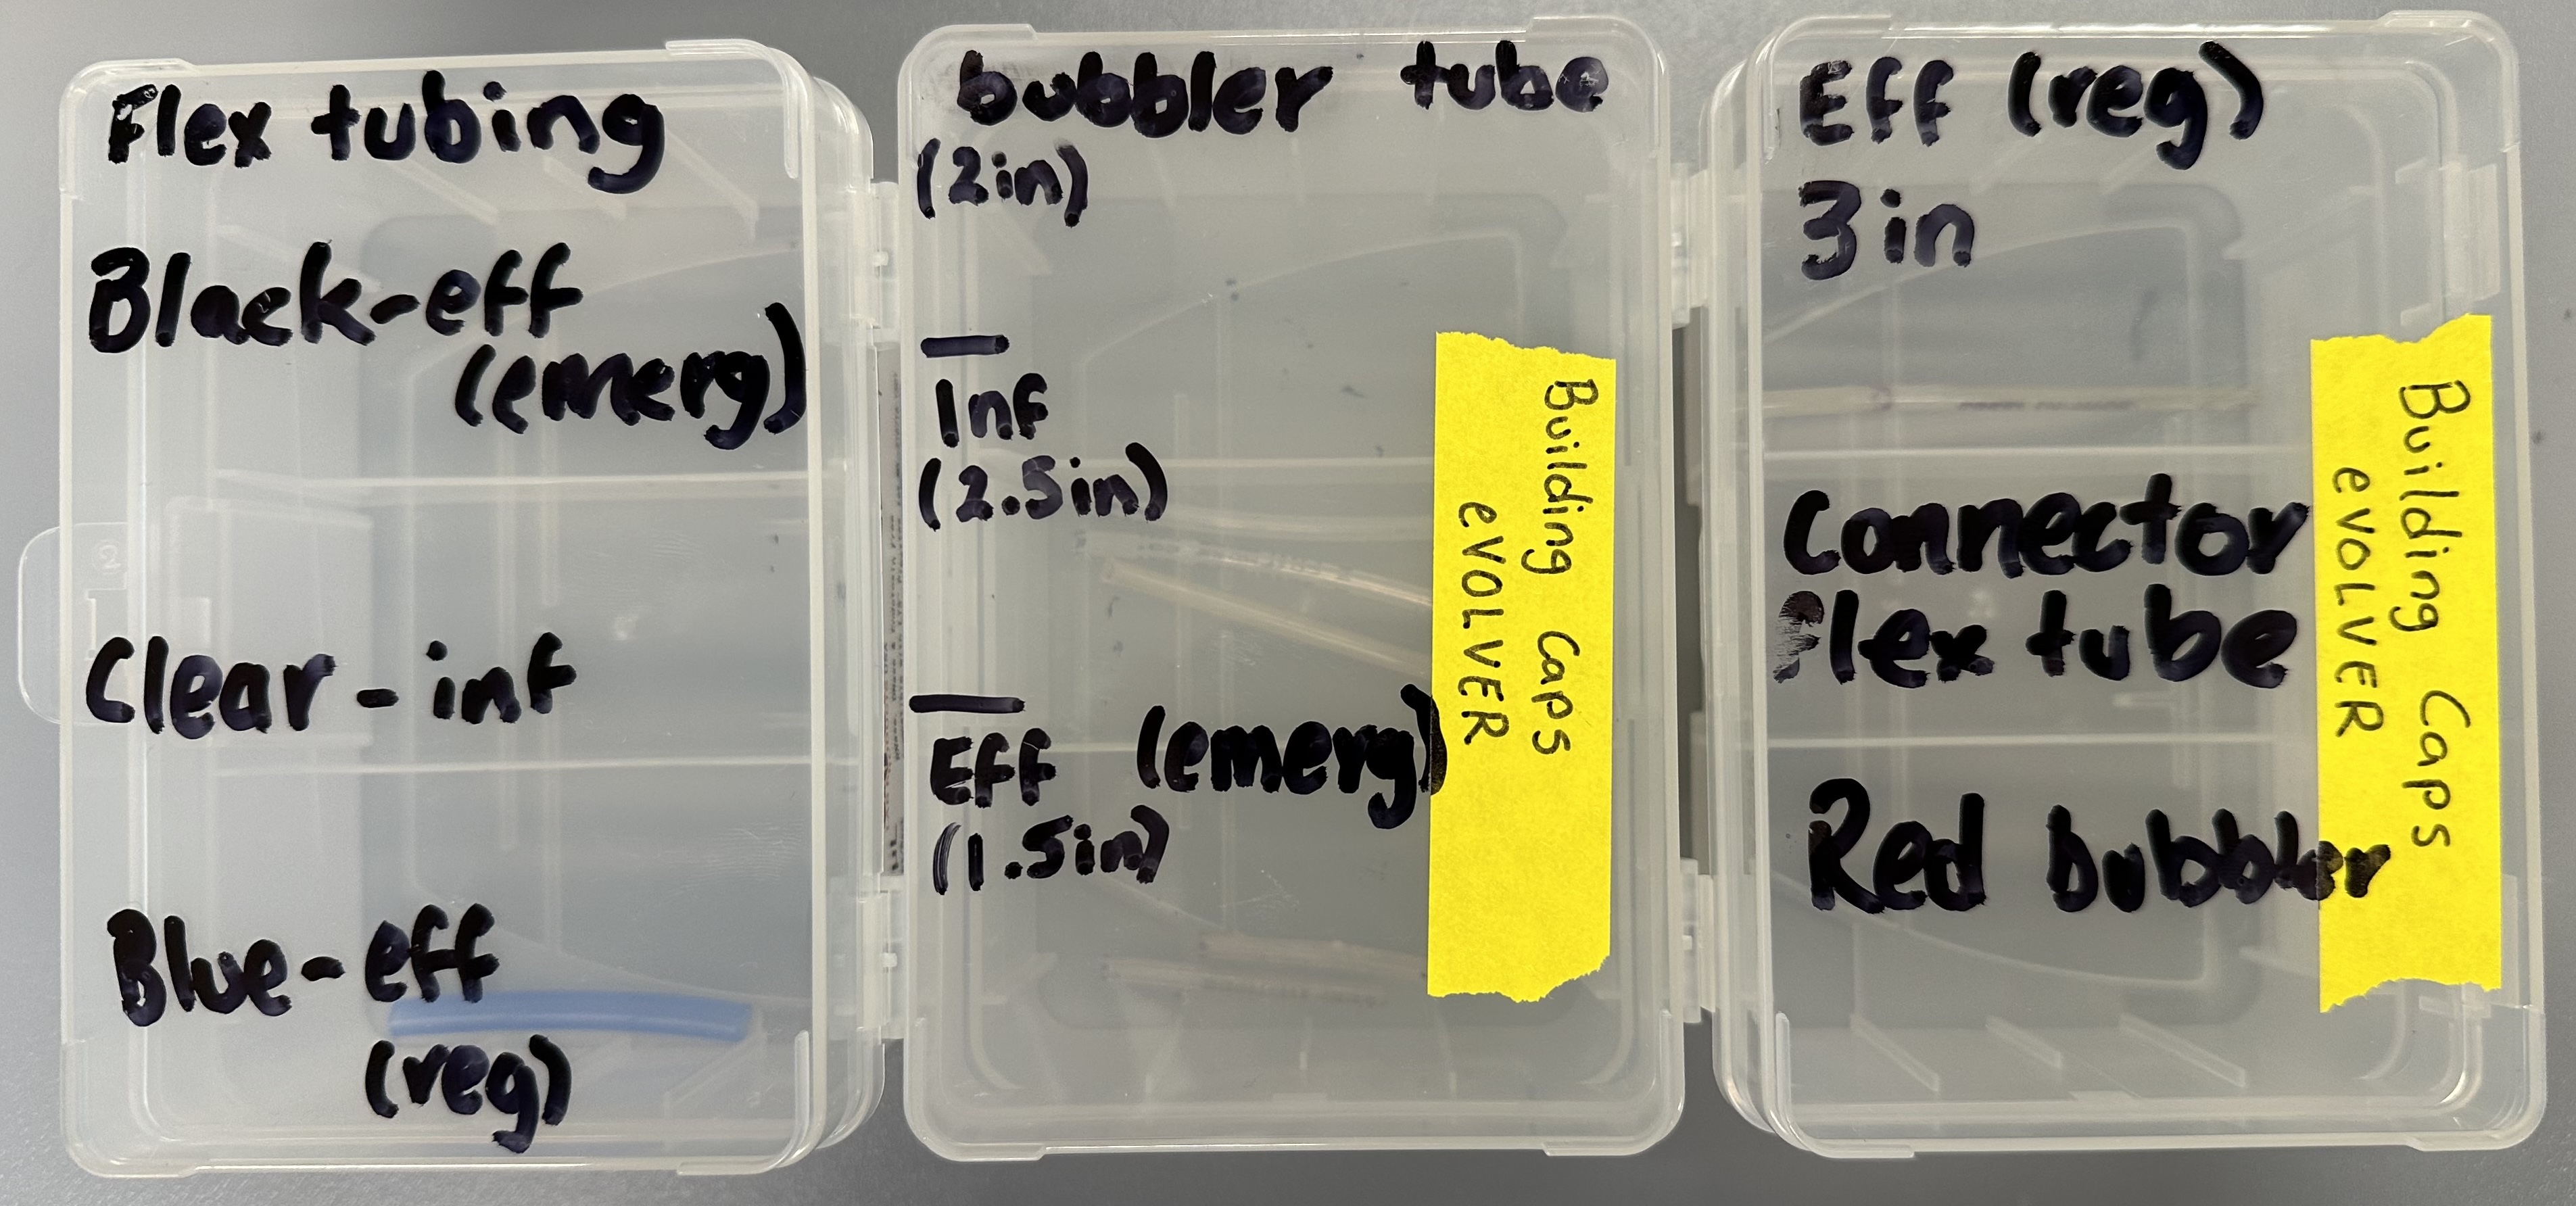 Flex tubing
Black-eff
(emerg)
Clear - inf
Blue-eff
(reg)
bubbler tube
(2in)
Inf
(2.5in)
Eff (emerg)
(1.5in)
Building Caps
eVOLVER
Eff (reg)
3in
Connector
Flex tube
Red bubbler
Building Caps
eVOLVER